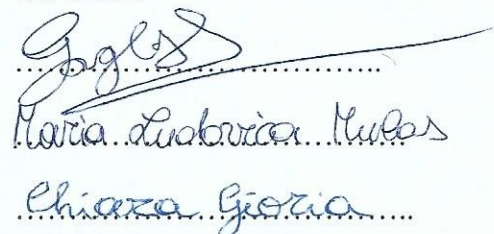 Maria Ludovica Mulas
Chiara Gioria